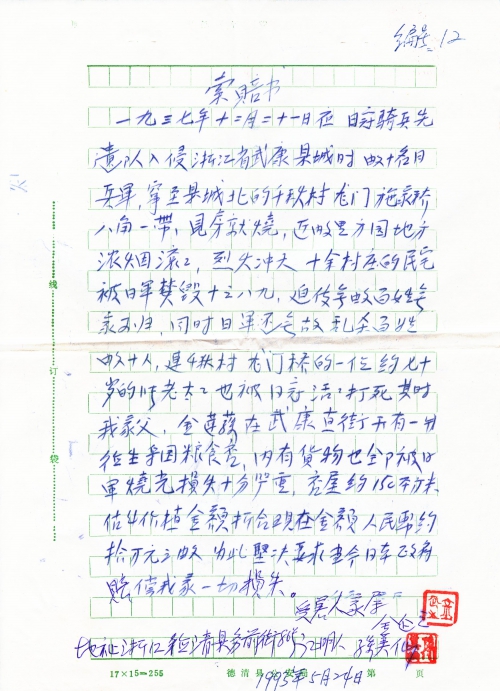 编号 12
索赔书
一九三七年十二月二十一日 日寇骑兵先
遣队入侵浙江省武康县城时 数十名日
兵军,窜至县城北的千秋村龙门施家桥
八角一带,见房就烧,近数里方园地方
浓烟滚滚,烈火冲天 十余村庄的民宅
被日军焚毁十之八九,迫使无数百姓无
家可归,同时日军还无故乱杀百姓
数十人,连千秋村龙门桥的一位约七十
岁的 老太太也被日寇活活打死 其时
我家父,金 在武康直街开有一
生 粮食 ,内有货物也全部被日
军烧光损失十分严重, 屋约150平方米
估计价植金额折合现在金额人民币约
拾万元之数 为此坚决要求 今日本政府
赔偿我家一切损失。
受害人家属
地址 浙江 德清县
1995年5月24日
线 订 袋
17×15=255 德清县 第 页